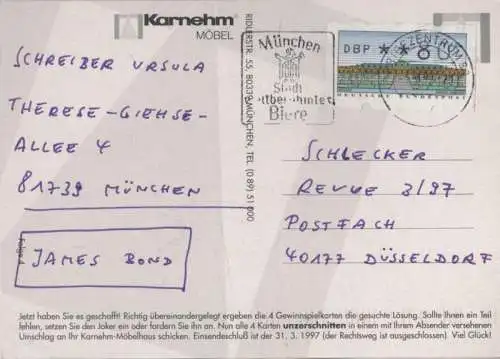 Karnehm®
MÖBEL
SCHREIBER URSULA
THERESE-GIEHSE-
ALLEE 4
81739 MÜNCHEN
JAMES BOND
RIDLERSTR. 55, 80339 MÜNCHEN, TEL. (0 89) 51 000
München
Stadt
Biere
DBP
DEUTSCHE BUNDESPOST
SCHLECKER
REVUE 3/97
POSTFACH
40177 DÜSSELDORF
Jetzt haben Sie es geschafft! Richtig übereinandergelegt ergeben die 4 Gewinnspielkarten die gesuchte Lösung. Sollte Ihnen ein Teil
fehlen, setzen Sie den Joker ein oder fordern Sie ihn an. Nun alle 4 Karten unzerschnitten in einem mit Ihrem Absender versehenen
Umschlag an Ihr Karnehm-Möbelhaus schicken. Einsendeschluß ist der 31. 3. 1997 (der Rechtsweg ist ausgeschlossen). Viel Glück!